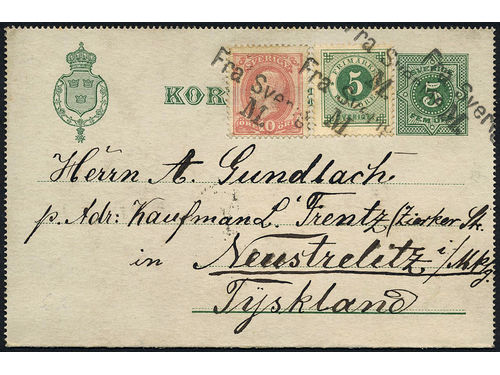 KOR
SVERIGE
10 ÖRE
FRIMÄRKE
5
SVERIGE
5
FEM ÖRE
Fra Sverige
M.
Fra Sverige
M.
Fra Sverige
M.
Herrn A. Gundlach.
p. Adr: Kaufmann L. Trentz (Zierker Str.
in Neustrelitz i/Mkg.
Tyskland